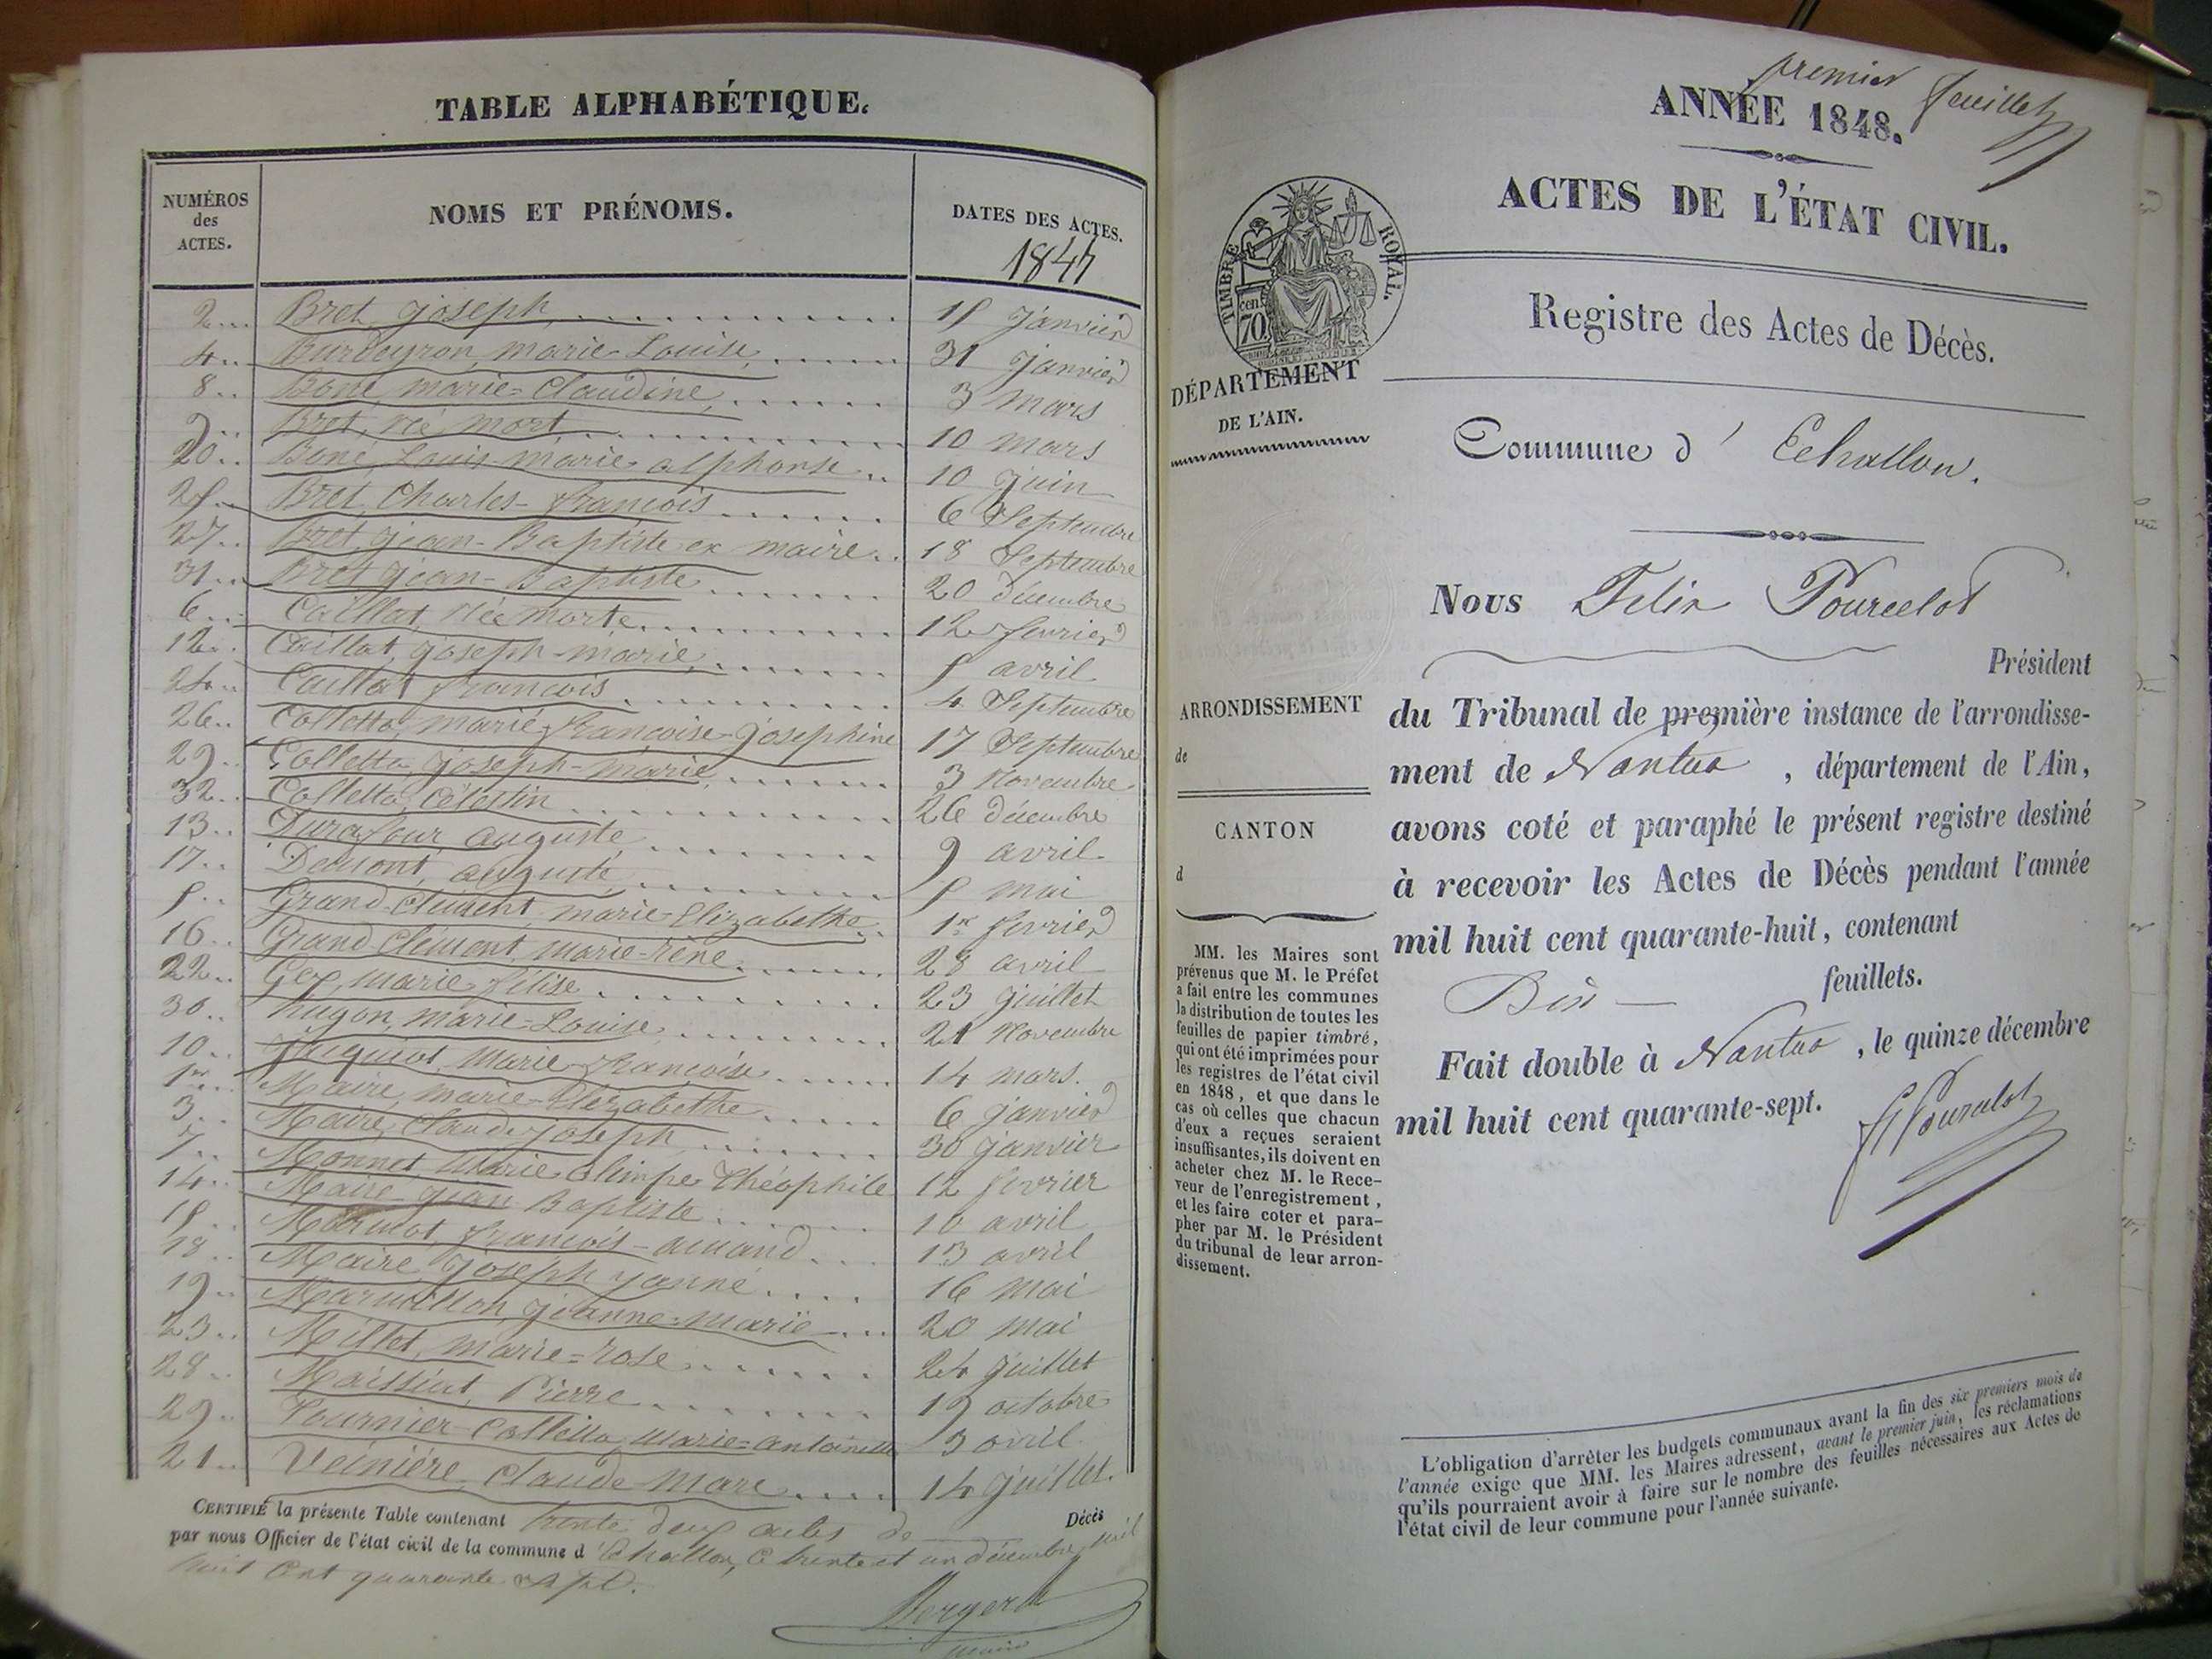 TABLE ALPHABÉTIQUE.
NUMÉROS des ACTES.
NOMS ET PRÉNOMS.
DATES DES ACTES.
1847
2 Bret, Joseph 15 Janvier
4 Burdeyron, marie-Louise 31 Janvier
8 Boné, marie=Claudine 3 mars
9 Bret, né mort 10 mars
20 Boné, Louis-marie alphonse 10 Juin
25 Bret, Charles-François 6 Septembre
27 Bret, Jean-Baptiste ex maire 18 Septembre
31 Bret Jean-Baptiste 20 décembre
6 Caillat, Née Morte 12 fevrier
12 Caillat, Joseph-marie 5 avril
24 Caillat François 4 Septembre
26 Colletta, marie-françoise-Josephine 17 Septembre
29 Colletta, Joseph-Marie 3 Novembre
32 Colletta, Célestin 26 décembre
13 Durafour auguste 9 avril
17 auguste 5 mai
5 Grand-Clément, marie-Elizabethe 1er fevrier
16 Grand Clément, marie-Rene 28 avril
22 Gex, marie, félise 23 Juillet
30 hugon, marie=Louise 21 Novembre
10 Marie françoise 14 mars.
1er Maire, marie-Elizabethe 6 Janvier
3 Maire, Claude Joseph 30 Janvier
7 Monnet, Marie Olimpe Théophile 12 fevrier
14 Maire Jean Baptiste 10 avril
15 françois-amand 13 avril
18 Maire, Joseph 16 mai
19 Jeanne=Marie 20 mai
23 Millet, marie=rose 24 Juillet
28 Maissiat, Pierre 19 octobre
29 Tournier-Colletta, Marie=antoinette 3 avril
21 Veinière, Claude-Marc 14 Juillet.
CERTIFIÉ la présente Table contenant trente deux actes de Décès
par nous Officier de l'état civil de la commune d'Echallon, le trente et un décembre mil
huit cent quarante sept.
maire
premier feuillet
ANNÉE 1848.
ACTES DE L'ÉTAT CIVIL.
TIMBRE ROYAL.
70 cen.
Registre des Actes de Décès.
DÉPARTEMENT
DE L'AIN.
Commune d' Echallon.
Nous Felix Pourcelot
Président
du Tribunal de première instance de l'arrondisse-
ment de Nantua, département de l'Ain,
avons coté et paraphé le présent registre destiné
à recevoir les Actes de Décès pendant l'année
mil huit cent quarante-huit, contenant
Dix feuillets.
Fait double à Nantua, le quinze décembre
mil huit cent quarante-sept.
F Pourcelot
ARRONDISSEMENT
de
CANTON
d
MM. les Maires sont
prévenus que M. le Préfet
a fait entre les communes
la distribution de toutes les
feuilles de papier timbré,
qui ont été imprimées pour
les registres de l'état civil
en 1848, et que dans le
cas où celles que chacun
d'eux a reçues seraient
insuffisantes, ils doivent en
acheter chez M. le Rece-
veur de l'enregistrement,
et les faire coter et para-
pher par M. le Président
du tribunal de leur arron-
dissement.
L'obligation d'arrêter les budgets communaux avant la fin des six premiers mois de
l'année exige que MM. les Maires adressent, avant le premier juin, les réclamations
qu'ils pourraient avoir à faire sur le nombre des feuilles nécessaires aux Actes de
l'état civil de leur commune pour l'année suivante.